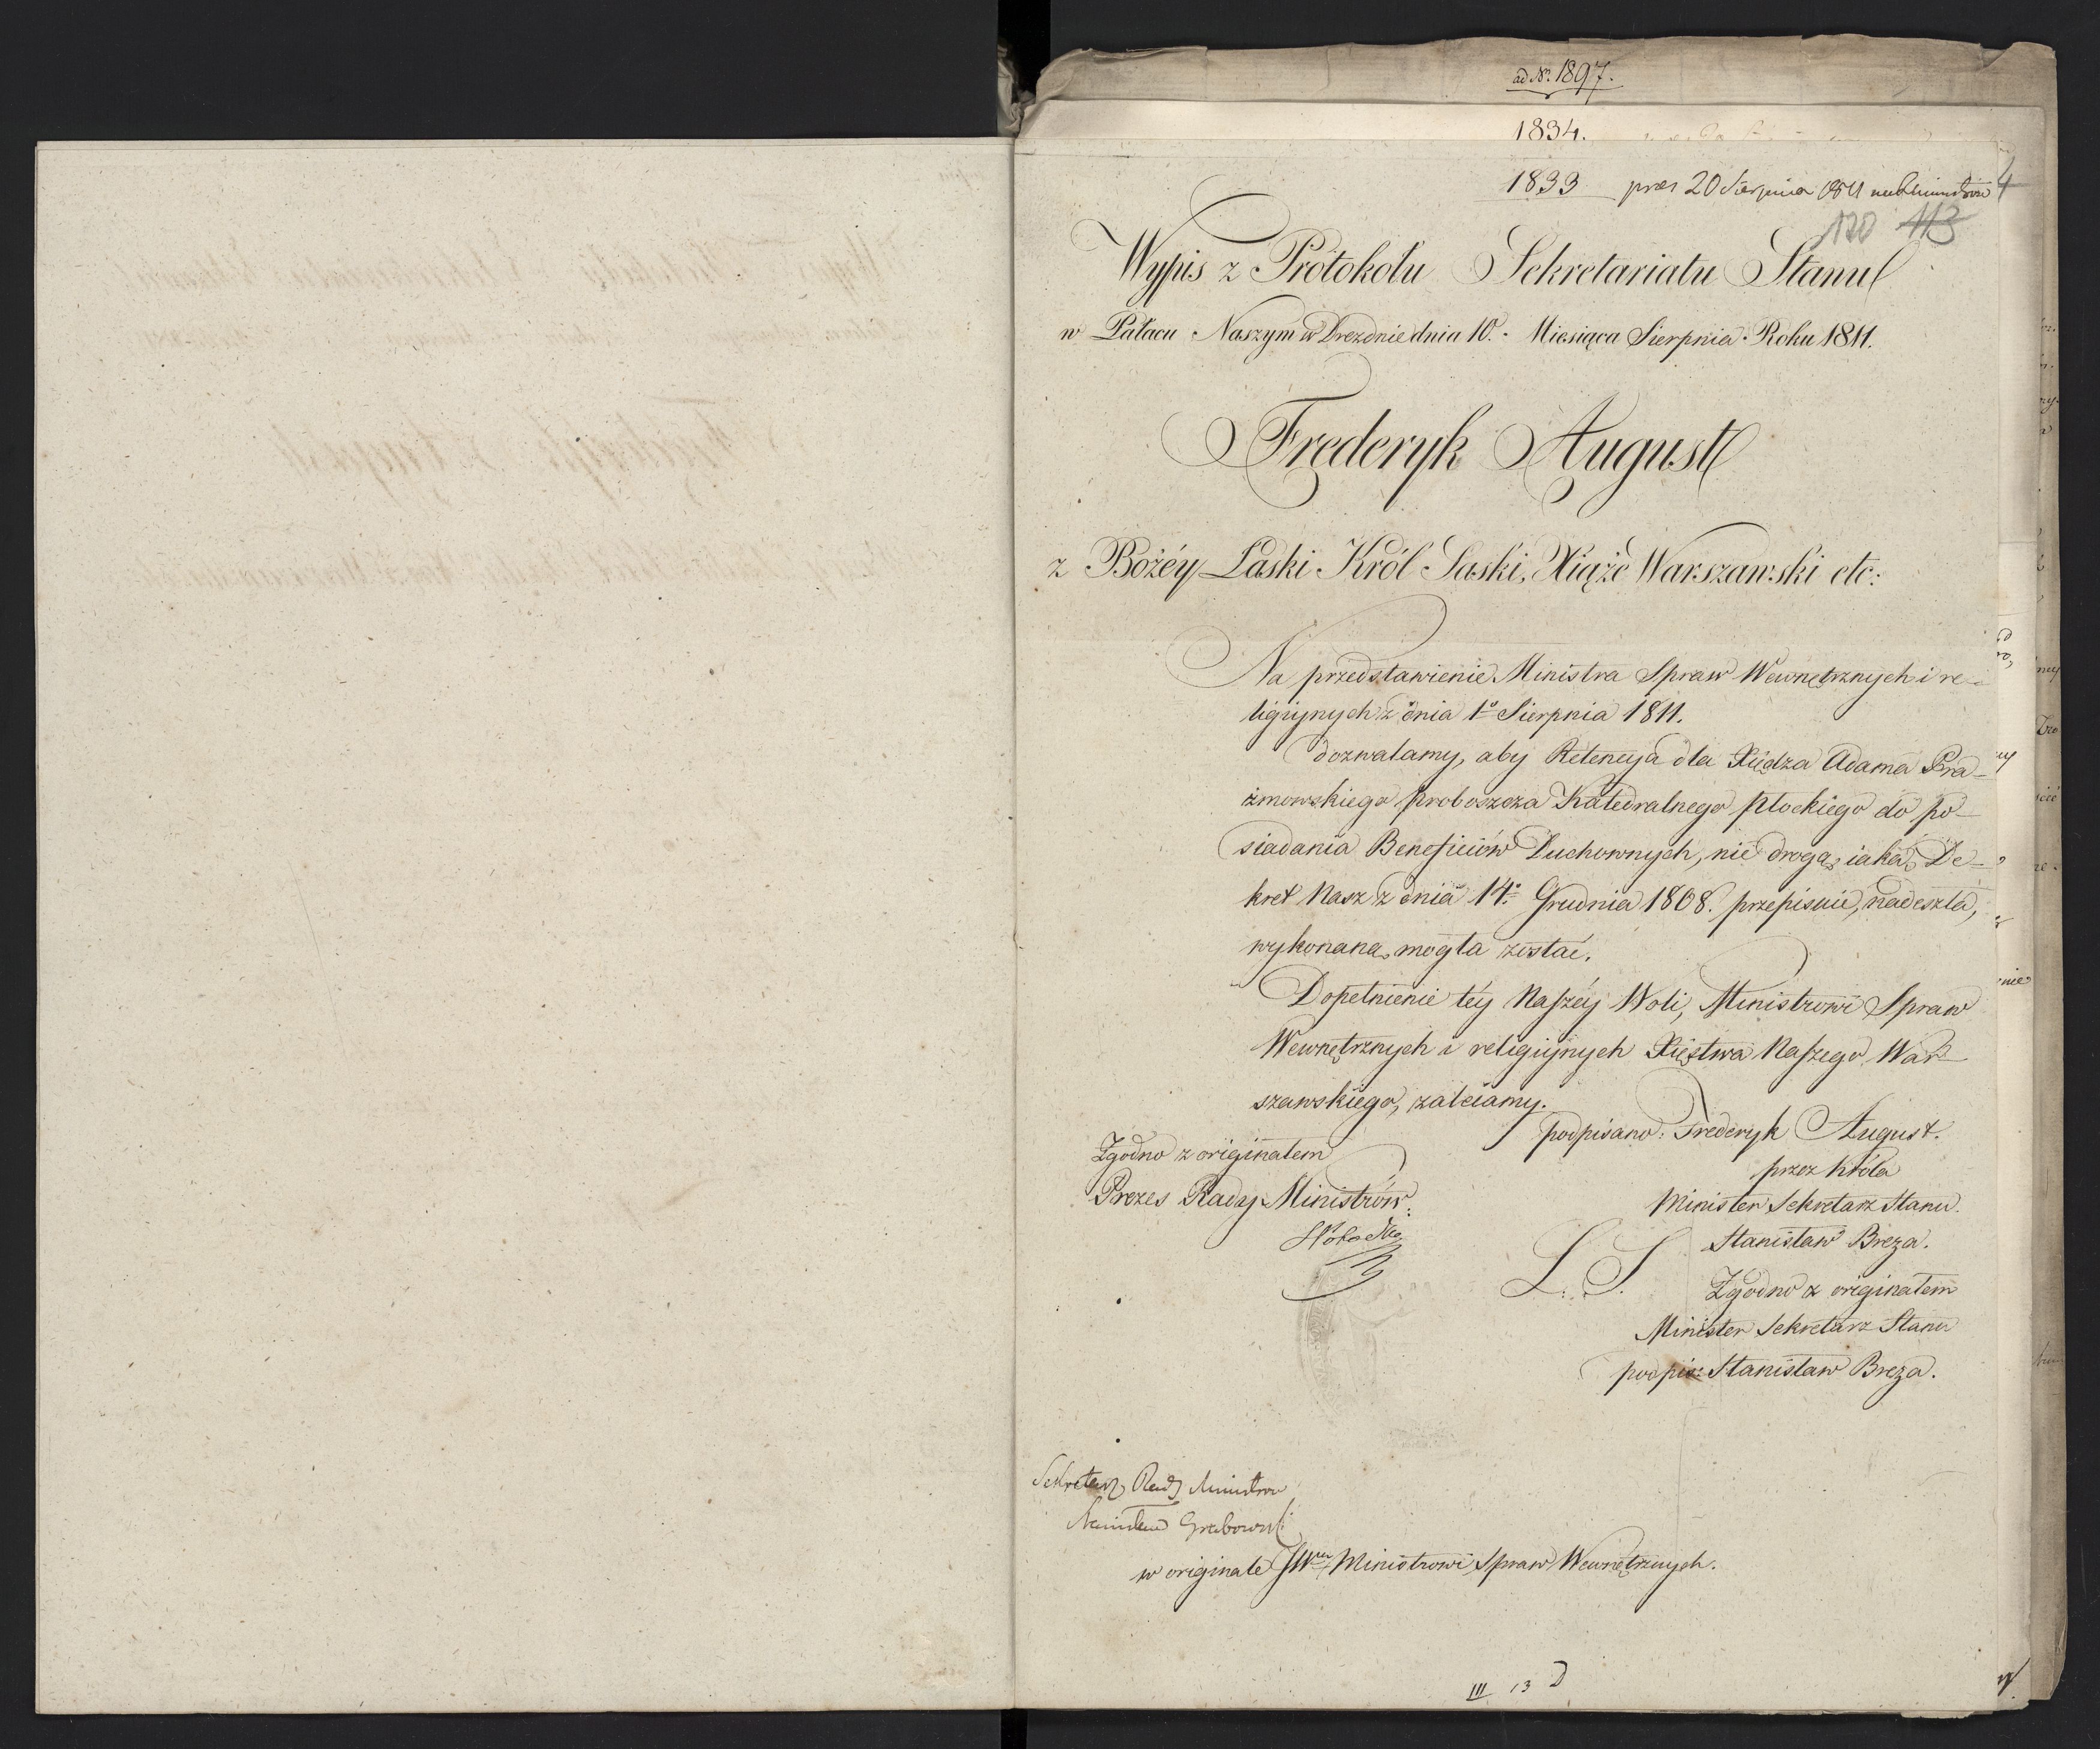 ad No. 1897.
1834.
1833 pres 20 Sierpnia 1811
120 113
Wypis z Protokołu Sekretariatu Stanu
w Pałacu Naszym w Dreznie dnia 10. Miesiąca Sierpnia Roku 1811.
Frederyk August
z Bożéy Łaski Król Saski, Xiąże Warszawski etc:
Na przedstawienie Ministra Spraw Wewnętrznych i re-
ligijnych z dnia 1o Sierpnia 1811.
dozwalamy, aby Retencyja dla Xiędza Adama Pra-
żmowskiego proboszcza Katedralnego płockiego do po-
siadania Beneficiów Duchownych, nie drogą, iaką De-
kret Nasz z dnia 14o Grudnia 1808. przepisuie, nadeszła,
wykonaną mogła zostać.
Dopełnienie téy Naszéy Woli, Ministrowi Spraw
Wewnętrznych i religijnych Xięstwa Naszego War-
szawskiego, zalecamy.
podpisano: Frederyk August.
przez króla
Minister Sekretarz Stanu.
Stanisław Breza.
L. S.
Zgodno z originałem
Minister Sekretarz Stanu
podpis: Stanisław Breza.
Zgodno z originałem
Prezes Rady Ministrów.
Sekretarz Rady Ministrow
Stanisław Grabowski
w originale JWmu Ministrowi Spraw Wewnętrznych.
III 13 D